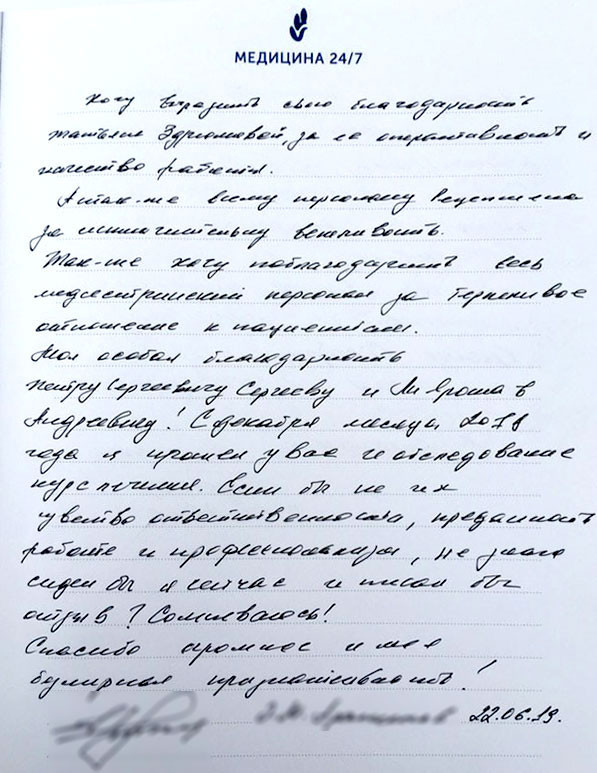 МЕДИЦИНА 24/7
Хочу выразить свою благодарность
Татьяне за её оперативность и
качество работы.
А так-же всему персоналу Рецепшена
за исключительну вежливость.
Так-же хочу поблагодарить весь
медсестринский персонал за терпеливое
отношение к пациентам.
Моя особая благодарность
Петру Сергеевичу Сергееву и
Андреевичу! С декабря месяца 2018
года я прошел у вас и обследование
курс лечения. Если бы не их
чувство ответственности, преданность
работе и профессионализм, не знаю
сидел бы я сейчас и писал бы
отзыв? Сомневаюсь!
Спасибо огромное и моя
безмерная признательность!
22.06.19.